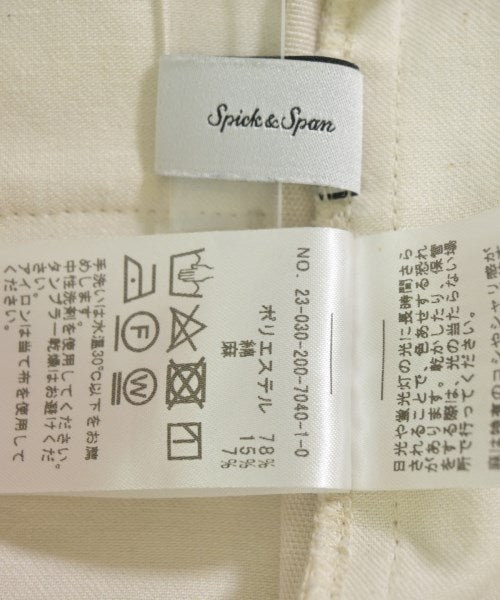 Spick & Span
NO. 23-030-200-7040-1-0
ポリエステル 78%
綿 15%
麻 7%
F
W
手洗いは水温30℃以下をお勧
めします。
中性洗剤を使用してください。
タンブラー乾燥はお避けくだ
さい。
アイロンは当て布を使用して
ください。
日光や蛍光灯の光に長時間さら
されることで、色あせする恐れ
があります。乾かしたり、保管
をする際は、光の当たらない場
所で行ってください。